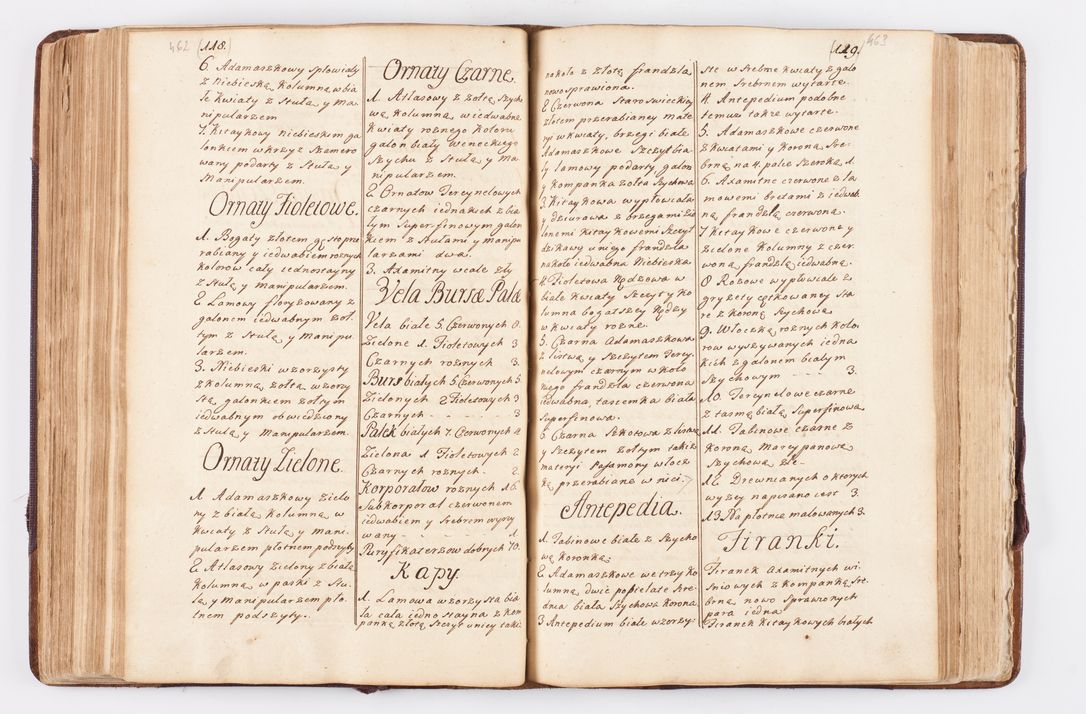 462 (118.)
6. Adamaszkowy spłowiały
z Niebieską Kolumną w bia
łe Kwiaty z Stułą y Ma
nipularzem
7. Kitaykowy niebieskim ga
lonkiem w krzyż szamero
wany podarty z Stułą y
Manipularzem.
Ornaty Fioletowe.
1. Bogaty złotem gęsto prze
rabiany y iedwabiem roznych
Kolorow cały iednostayny
z Stułą y Manipularzem.
2. Lamowy floryzowany z
galonem iedwabnym żoł
tym z Stułą y Manipu
larzem.
3. Niebieski wzorzysty
z Kolumną zołtą wzorzy
stą galonkiem zołtym
iedwabnym obwiedziony
z Stułą y Manipularzem.
Ornaty Zielone.
1. Adamaszkowy zielo
ny z białą Kolumną w
Kwiaty z Stułą y Mani
pularzem płotnem podszyty
2. Atłasowy Zielony z białą
Kolumną w paski z Stu
łą y Manipularzem pło
tnem podszyty.
Ornaty Czarne.
1. Atłasowy z zołtą szycho
wą Kolumną w iedwabne
Kwiaty roznego Koloru
galon biały Weneckiego
Szychu z Stułą y Ma
nipularzem.
2. Ornatow Tercynelowych
czarnych iednakich z bia
łym superfinowym galon
kiem z Stułami y Manipu
larzami dwa.
3. Adamitny wcale zły
Vela Bursæ Palæ
Vela białe 5. Czerwonych 8.
Zielone 1. Fioletowych 3
Czarnych roznych 3.
Burs białych 5. Czerwonych 5.
Zielonych 2 Fioletowych 3
Czarnych - - - - 3
Palek białych 7. Czerwonych 4
Zielona 1 Fioletowych 2
Czarnych roznych. 2.
Korporałow roznych 16.
Subkorporał czerwonem
iedwabiem y srebrem wyszy
wany - - - 1.
Puryfikaterzow dobrych 70.
Kapy.
1. Lamowa wzorzysta bia
ła cała iedno stayna z Kom
panką złotą Szczyt u niey taki:
(119.) 463
nokoło z złotą frandzlą
nowo sprawiona.
2. Czerwona staroswieckiey
złotem przerabianey mate
ryi w kwiaty, brzegi białe
Adamaszkowe Szczyt bia
ły lamowy podarty, galon
y Kompanka zołta szychowa
3. Kitaykowa wypłowiała
y dziurawa z brzegami zie
lonemi Kitaykowemi Szczyt
dzikawy u niego frandzla
na koło iedwabna Niebieska
4. Fioletowa Rądzowa w
białe Kwiaty Szczyt y Ko
lumna bogatszey Rądzy
w Kwiaty rozne.
5. Czarna Adamaszkowa
z listwą y Szczytem Tercy
nelowym czarnym w koło
niego frandzla czerwona
iedwabna, tasiemka biała
superfinowa.
6. Czarna szkotowa z listwą
y Szczytem zołtym takiż
materyi Paiamony włocz
ką przerabiane w nici.
Antepedia.
1. Tabinowe białe z Szycho
wą Koronką.
2. Adamaszkowe we trzy Ko
lumny, dwie popielate sre
dnia biała Szychowa Korona
3 Antepedium białe wzorzy:
ste w srebrne kwiaty z galo
nem srebrnem wytarte.
4. Antepedium podobne
temuż także wytarte.
5. Adamaszkowe czerwone
z Kwiatami y Koroną Sre
brną na 4. palce szeroką 1.
6. Axamitne czerwone z la
mowemi bretami z iedwab
ną frandzlą czerwoną.
7 Kitaykowe czerwone y
zielone Kolumny z czer
woną frandzlą iedwabną.
8 Rozowe wypłowiałe z
gryzety cętkowaney sta
re z Koroną szychową
9. Włoczką roznych Kolo
row wyszywanych iedna
kich z galonem białym
szychowym - - - 3.
10. Tercynelowe czarne
z tasmą białą superfinową
11. Tabinowe czarne z
Koroną Marcypanową
Szychową złe
12. Drewnianych o ktorych
wyzey napisano iest 3.
13. Na płotnie malowanych 3.
Firanki.
Firanek Axamitnych wi
sniowych z Kompanką Sre
brną nowo sprawionych
para iedna
Firanek Kitaykowych białych